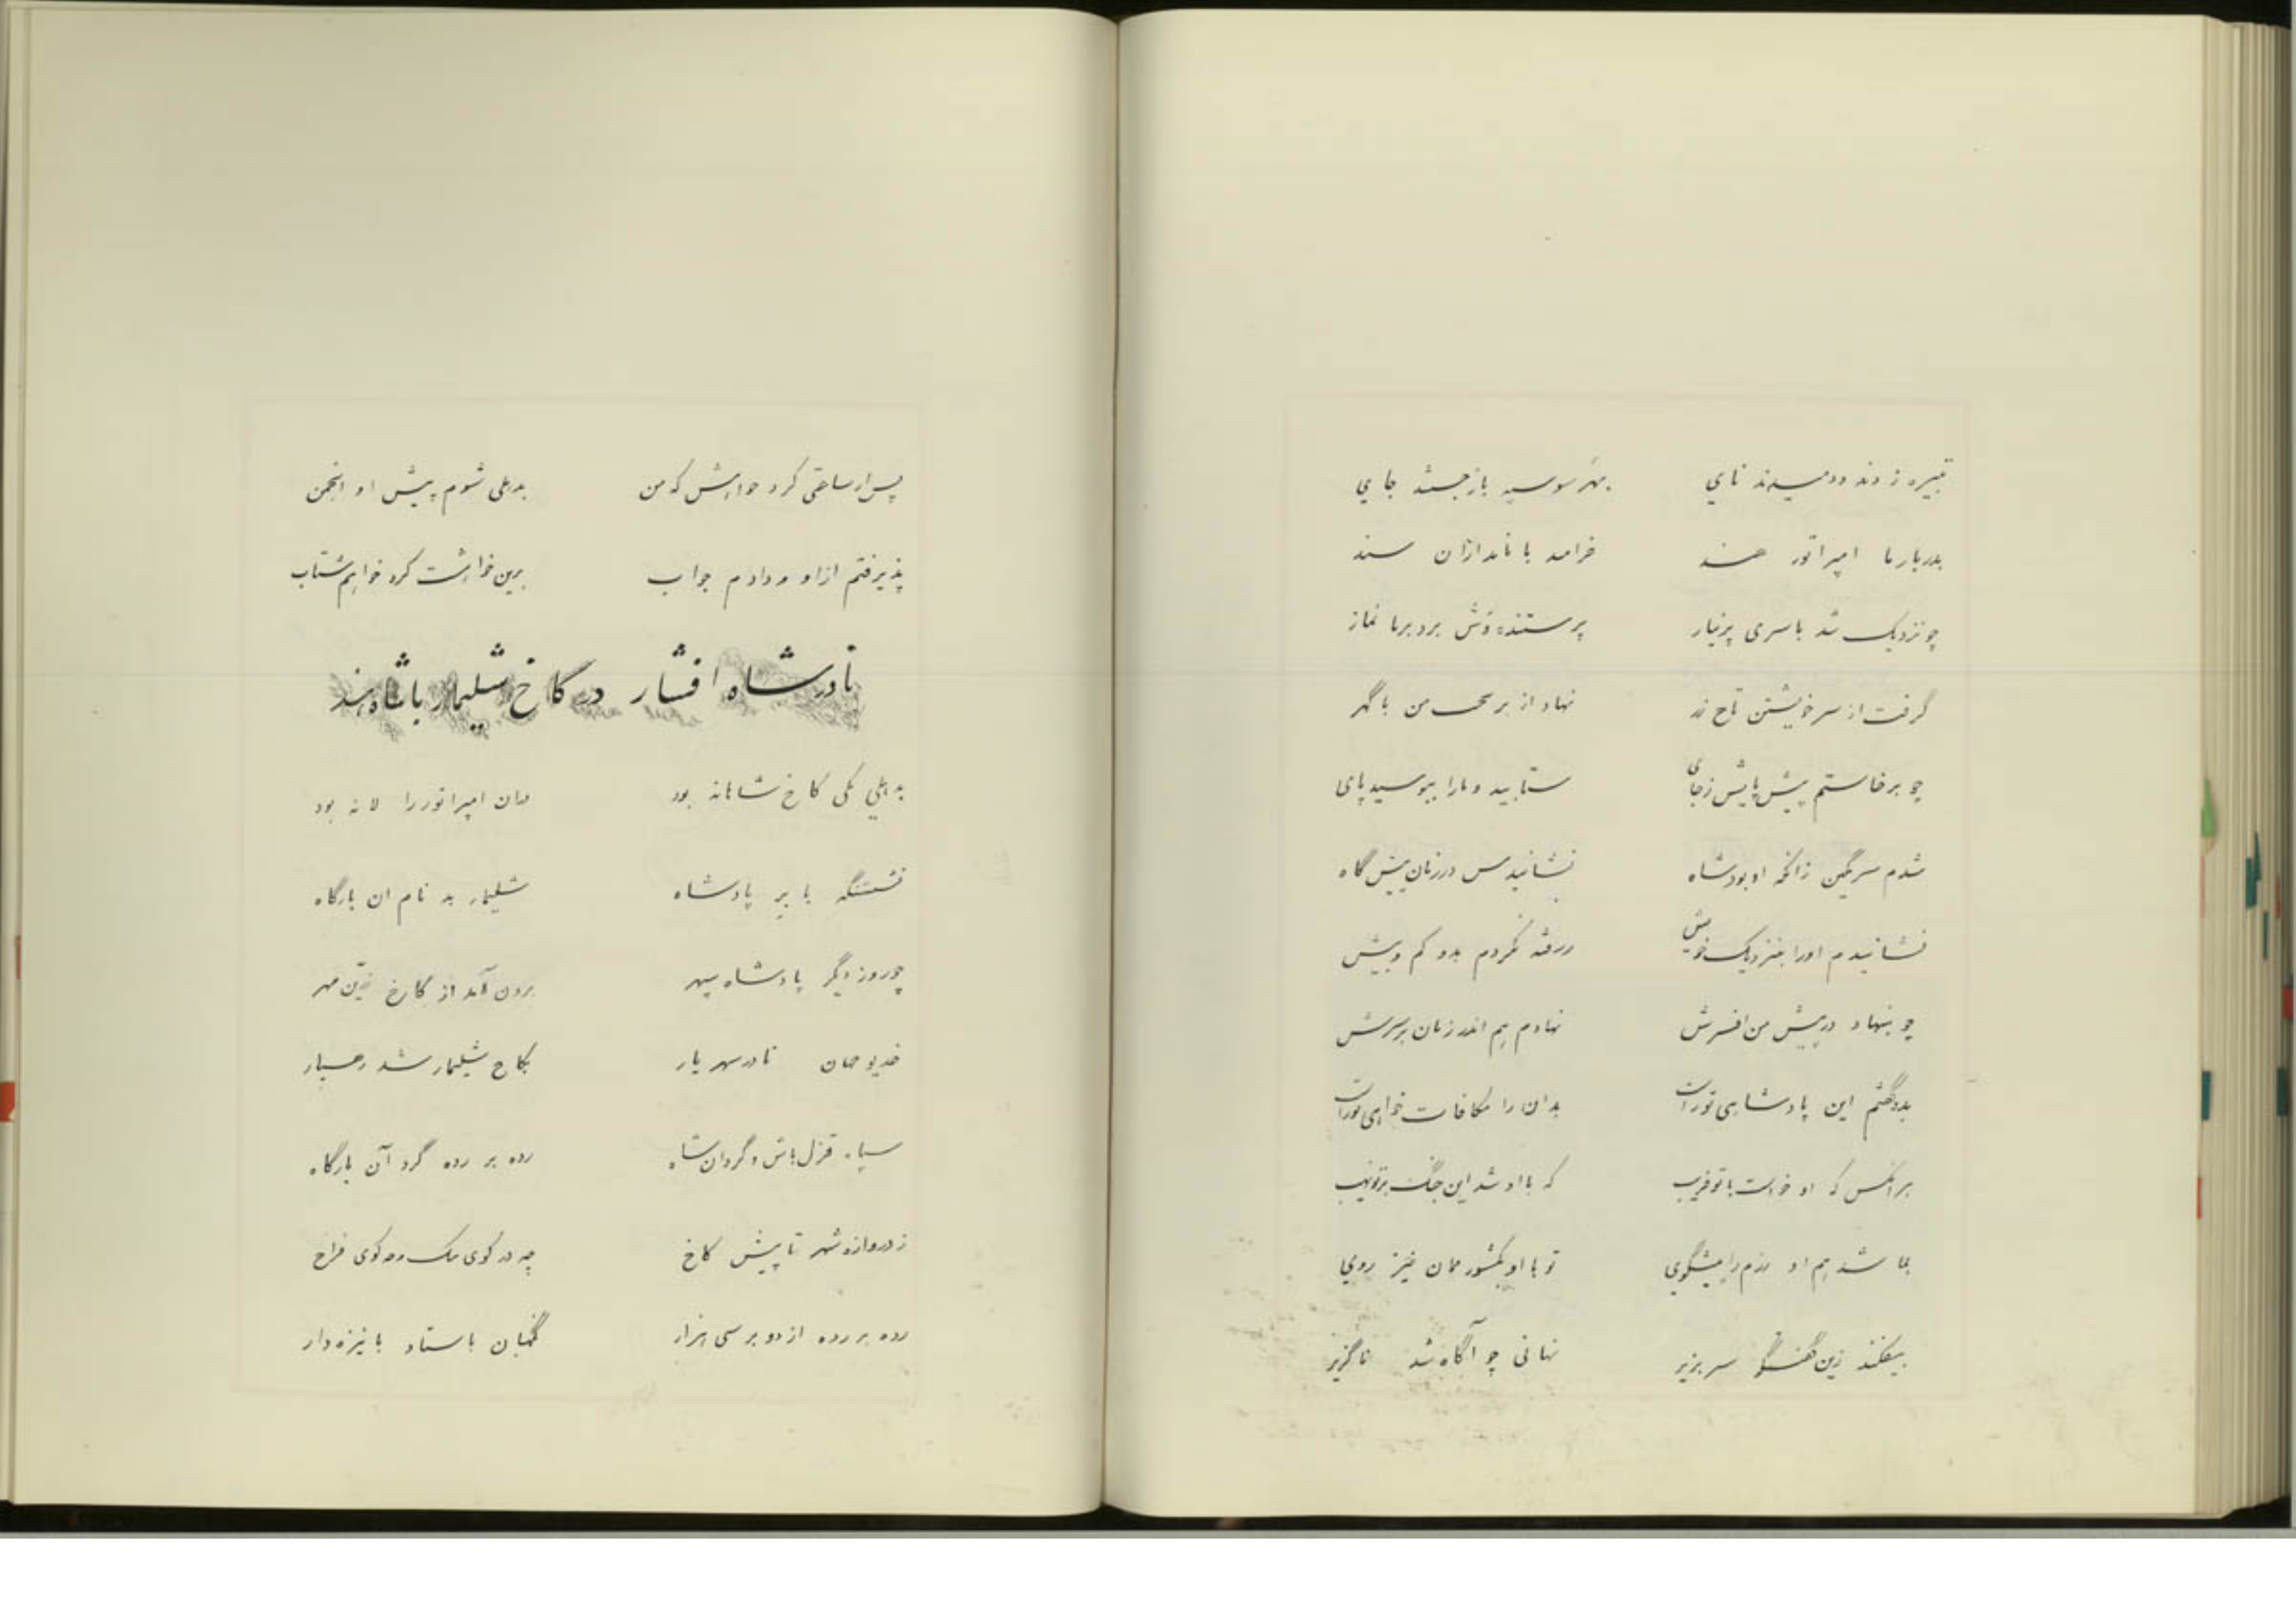 تبیره زدند و دمیدند نای بهر سو سپه باز جستند جای
بدربار ما امپراتور هند خرامد با نامداران سند
چو نزدیک شد با سری پرنیاز پرستنده‌وش برد بر ما نماز
گرفت از سر خویشتن تاج زر نهاد از بر من با گهر
چو برخاستم پیش پایش ز جای ستایید و ما را ببوسید پای
شدم سرگین زانکه او بود شاه نشانیدمس در زمان پیش گاه
نشانیدم او را بنزدیک خویش نکردم بدو کم و بیش
چو بنهاد در پیش من افسرش نهادم هم اندر زمان بر سرش
بدو گفتم این پادشاهی تو راست بدان را مکافات خواهی تو راست
بر آنکس که او خواست با تو فریب که با او شد این جنگ بر تو نهیب
بما شد هم او رزم را پیشگوی تو با او بکشور ممان نیز روی
بیفکند زین گفتگو سر بزیر نهانی چو آگاه شد ناگزیر
پس از ساعتی کرد خواهش که من بدهلی شوم پیش او انجمن
پذیرفتم از او و دادم جواب برین خواهشت کرد خواهم شتاب
نادرشاه افشار در کاخ شلیمار با شاه هند
بدهلی یکی کاخ شاهانه بود بدان امپراتور را لانه بود
نشستنگه بابر پادشاه شلیمار بد نام ان بارگاه
چو روز دگر پادشاه سپهر برون آمد از کاخ مهر
خدیو جهان نادر شهریار بکاخ شلیمار شد رهسپار
سپاه قزلباش و گردان شاه رده بر رده گرد آن بارگاه
ز دروازه شهر تا پیش کاخ چه در کوی تنک و چه کوی فراخ
رده بر رده از دو بر سی هزار نگهبان باستاد با نیزه دار